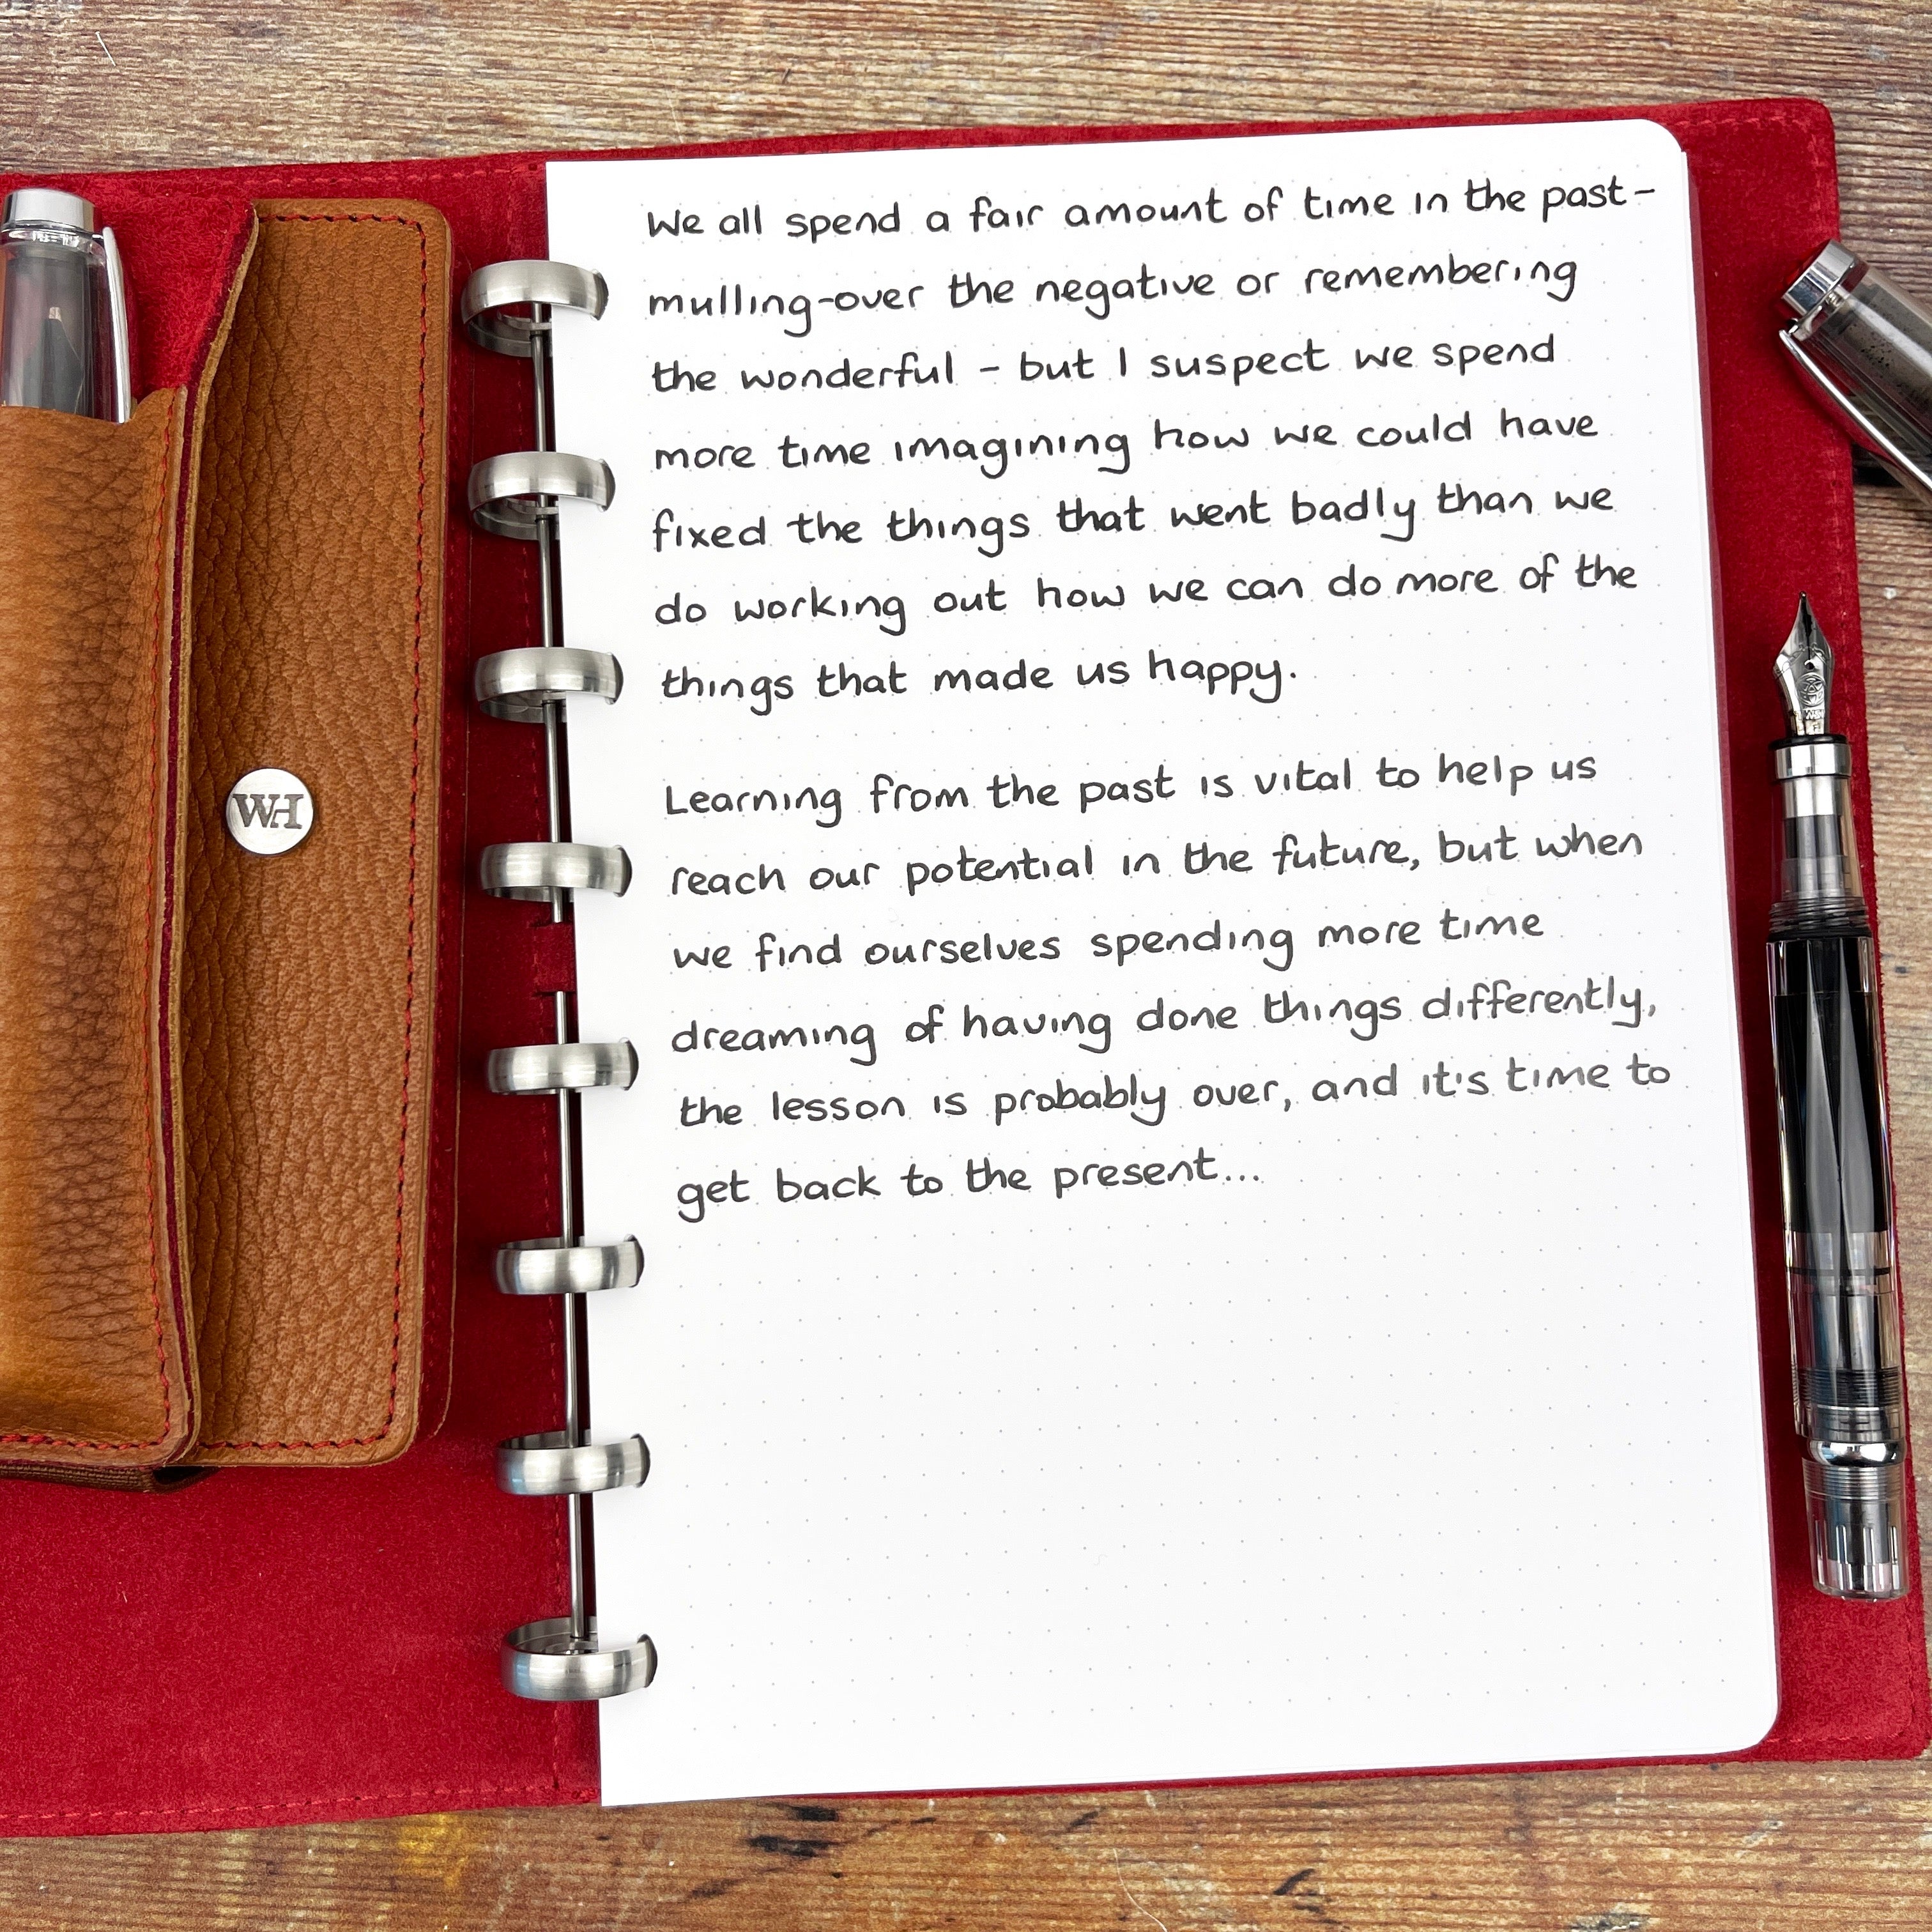 We all spend a fair amount of time in the past-
mulling-over the negative or remembering
the wonderful - but I suspect we spend
more time imagining how we could have
fixed the things that went badly than we
do working out how we can do more of the
things that made us happy.
Learning from the past is vital to help us
reach our potential in the future, but when
we find ourselves spending more time
dreaming of having done things differently,
the lesson is probably over, and it's time to
get back to the present...
WH